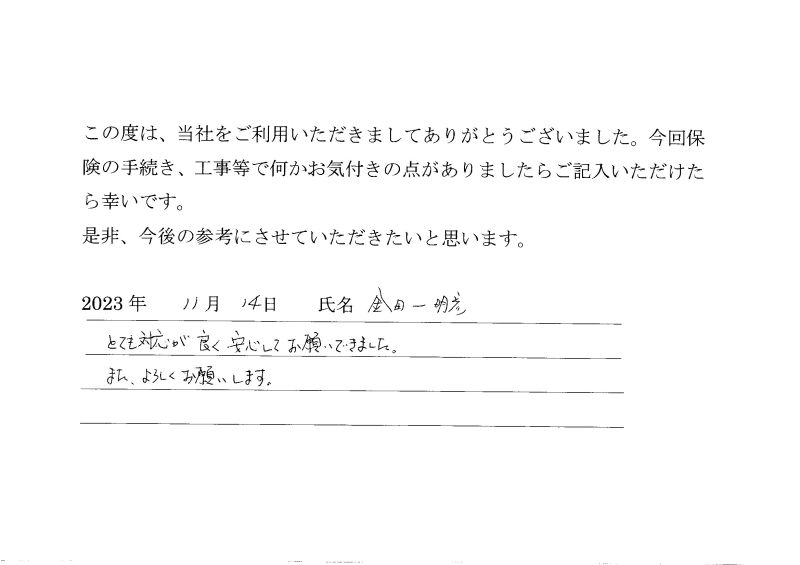 この度は、当社をご利用いただきましてありがとうございました。今回保
険の手続き、工事等で何かお気付きの点がありましたらご記入いただけた
ら幸いです。
是非、今後の参考にさせていただきたいと思います。
2023 年 11 月 14 日 氏名 金田一 明彦
とても対応が 良く 安心して お願いできました。
また、よろしくお願いします。